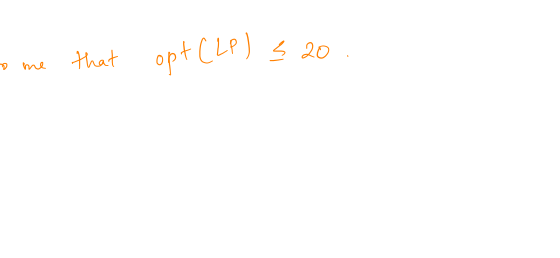 me that opt(LP) ≤ 20.